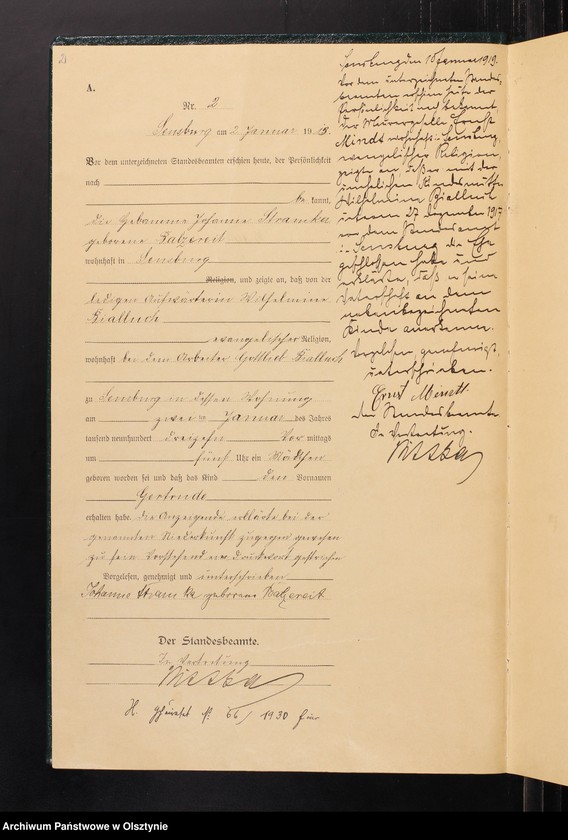 2
A.
Nr. 2
Sensburg am 2. Januar 1913.
Vor dem unterzeichneten Standesbeamten erschien heute, der Persönlichkeit
nach
be kannt,
die Hebamme Johanne Stramka
geborene Balzereit
wohnhaft in Sensburg
Religion, und zeigte an, daß von der
ledigen Aufwärterin Wilhelmine
Bialluch
evangelischer Religion,
wohnhaft bei dem Arbeiter Gottlieb Bialluch
zu Sensburg in dessen Wohnung
am zwei Januar des Jahres
tausend neunhundert dreizehn Vor mittags
um fünf Uhr ein Mädchen
geboren worden sei und daß das Kind den Vornamen
Gertrude
erhalten habe. Die Anzeigende erklärte bei der
genannten Niederkunft zugegen gewesen
zu sein. Vorstehend ein Druckwort gestrichen
Vorgelesen, genehmigt und unterschrieben
Johanne Stramka geborene Balzereit
Der Standesbeamte.
In Vertretung
H. geheiratet Nr. 66/1930 hier
Sensburg den 16 Januar 1919.
Vor dem unterzeichneten Standes-
beamten erschien heute der
Persönlichkeit nach bekannt
der Ernst
Mindt wohnhaft in Sensburg,
evangelischer Religion,
zeigte an, daß er mit der
unehelichen Kindesmutter
Wilhelmine Bialluch
unterm 27 Dezember 1917
vor dem Standesamt
in Sensburg die Ehe
geschlossen habe und
erkläre, daß er seine
Vaterschaft an dem
nebenbezeichneten
Kinde anerkenne.
Vorgelesen, genehmigt,
unterschrieben.
Ernst Mindt.
Der Standesbeamte
In Vertretung.
Archiwum Państwowe w Olsztynie